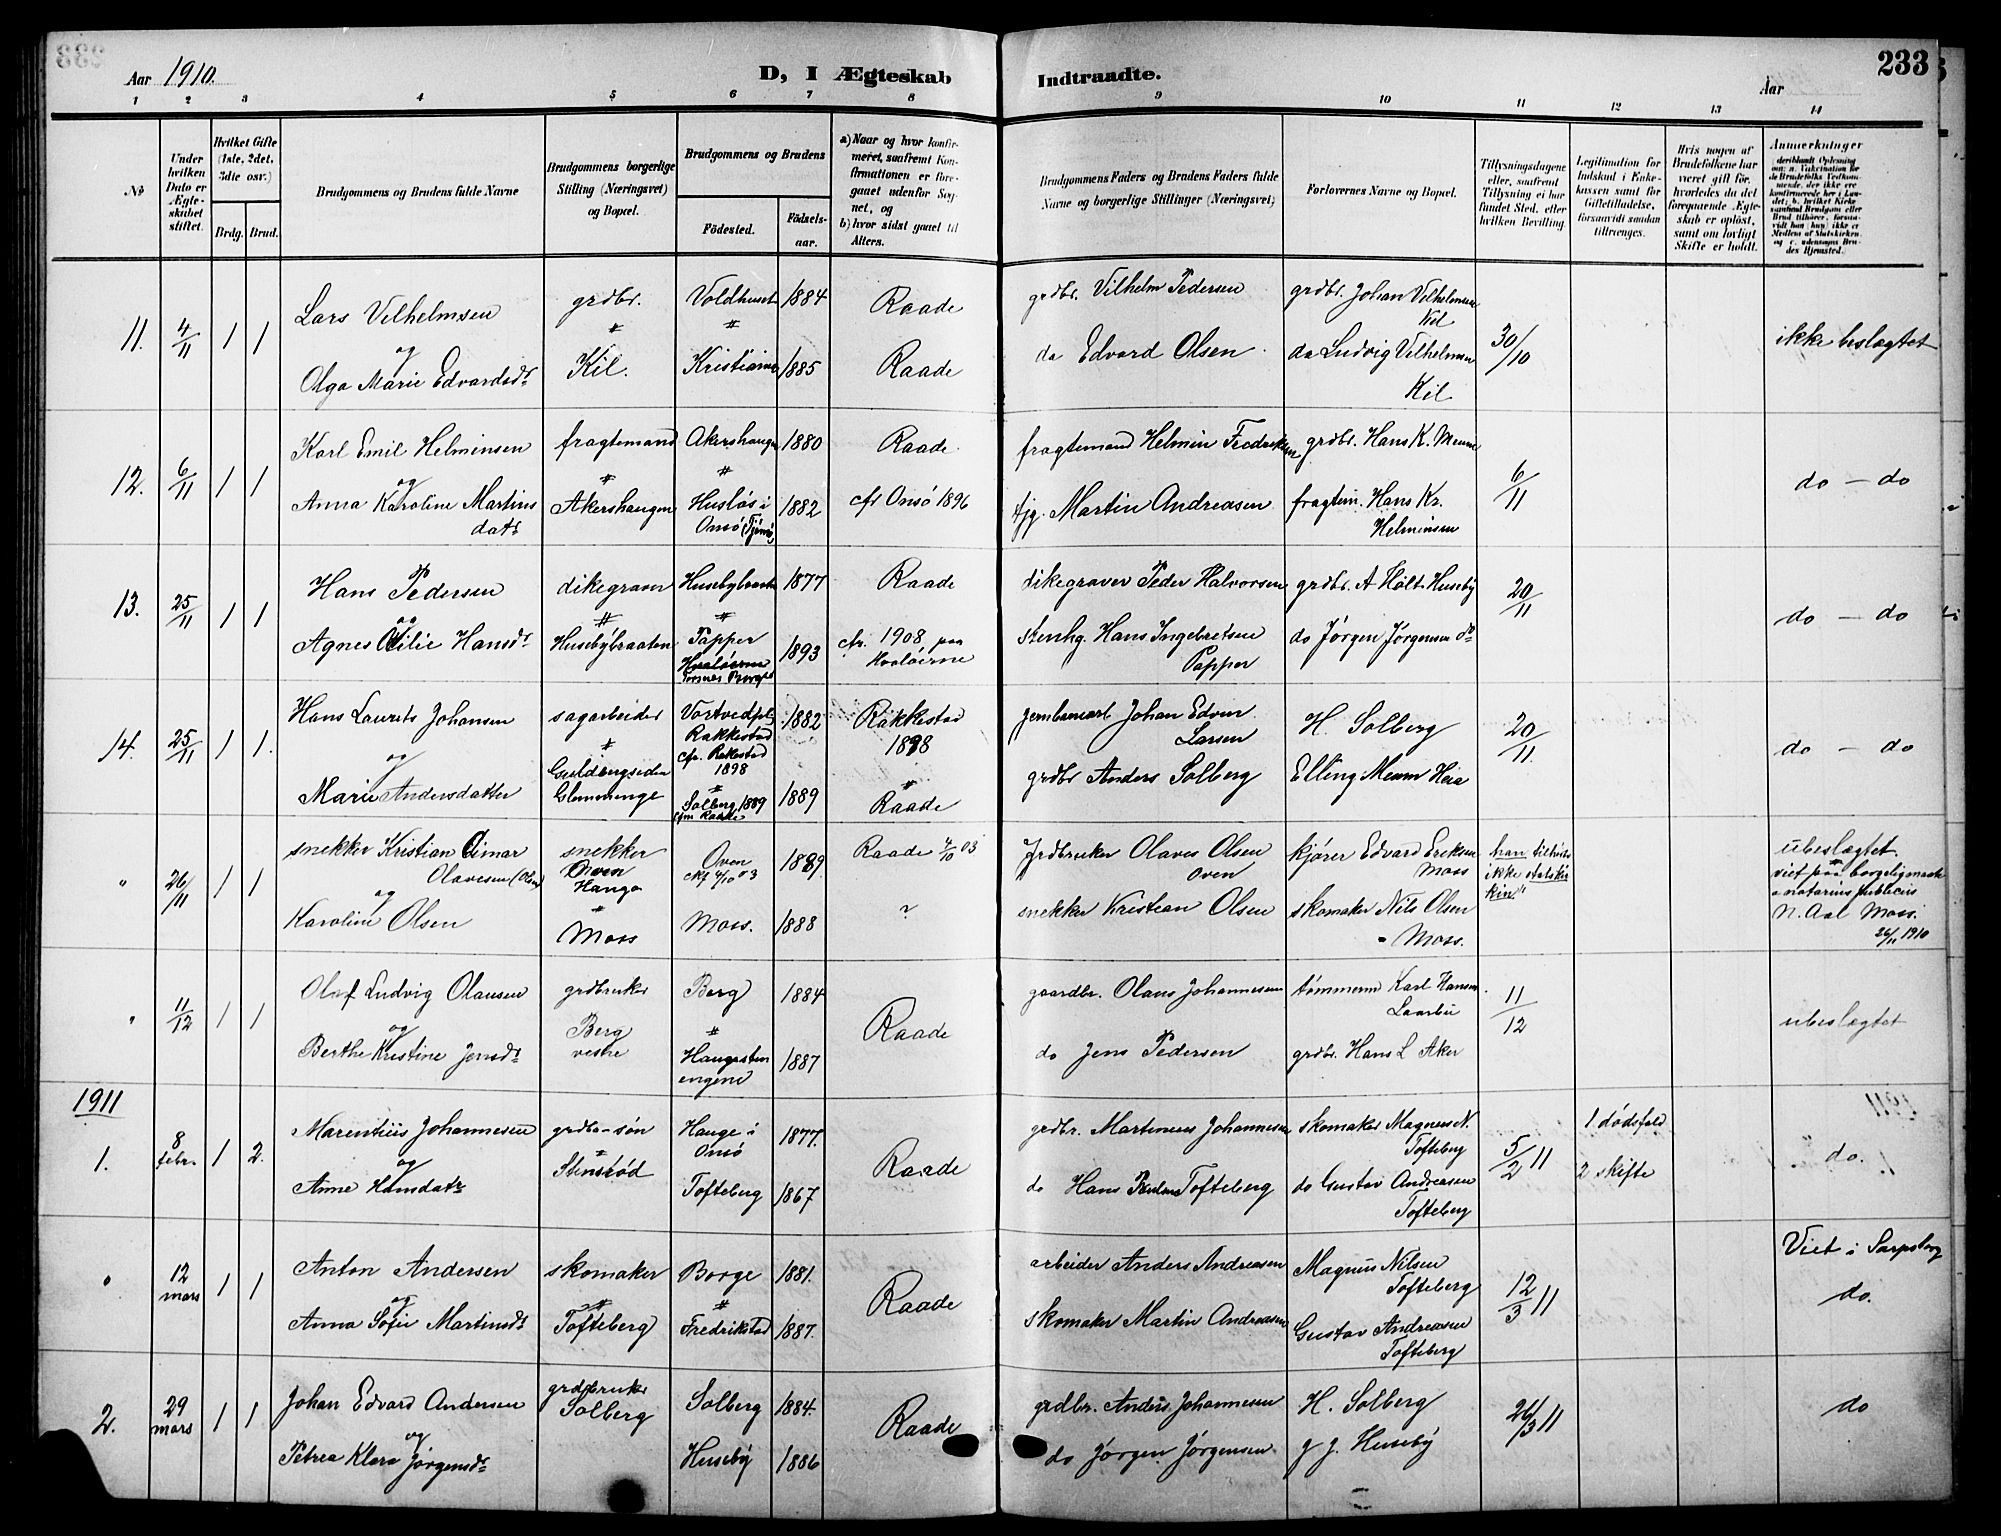 233
Aar 1910.
D, I Ægteskab Indtraadte.
Aar
1 2 3 4 5 6 7 8 9 10 11 12 13 14
No
Under hvilken Dato er Ægteskabet stiftet.
Hvilket Gifte (1ste, 2det, 3die osv.)
Brdg. Brud.
Brudgommens og Brudens fulde Navne
Brudgommens borgerlige Stilling (Næringsvei) og Bopæl.
Brudgommens og Brudens
Fødested. Fødselsaar.
a) Naar og hvor konfirmeret, saafremt Konfirmationen er foregaaet udenfor Sognet, og
b) hvor sidst gaaet til Alters.
Brudgommens Faders og Brudens Faders fulde Navne og borgerlige Stillinger (Næringsvei)
Forlovernes Navne og Bopæl.
Tillysningsdagene eller, saafremt Tillysning ei har fundet Sted, efter hvilken Bevilling.
Legitimation for Indskud i Enkekassen samt for Giftetilladelse, forsaavidt saadan tiltrænges.
Hvis nogen af Brudefolkene har været gift før, hvorledes da det foregaaende Ægteskab er opløst, samt om lovligt Skifte er holdt.
Anmerkninger
11. 4/11 1 1
Lars Vilhelmsen
og
Olga Marie Edvardsdr
grdbr.
Kil.
Voldhuset 1884
Kristiania 1885
Raade
Raade
grdbr. Vilhelm Pedersen
do Edvard Olsen
grdbr. Johan Vilhelmsen
Kil
do Ludvig Vilhelmsen
Kil
30/10
ikke beslægtet
12. 6/11 1 1
Karl Emil Helminsen
og
Anna Karoline Martins
datr
fragtemand
Akershaugen
Akershaugen 1880
Husløs i
Onsø (Tjernø) 1882
Raade
cfr Onsø 1896
fragtemand Helmin Fredriksen
tjg. Martin Andreasen
grdbr. Hans K. Menne
fragtem. Hans Kr.
Helminsen
6/11
do - do
13. 25/11 1 1
Hans Pedersen
og
Agnes Otilie Hansdr
dikegraver
Husebybraaten
Husebybraaten 1877
Papper
Hvaløerne
Torsnes Borge 1893
Raade
cfr. 1908 paa
Hvaløerne
dikegraver Peder Halvorsen
stenhg. Hans Ingebretsen
Papper
grdbr. A Holt Huseby
do Jørgen Jørgensen do
20/11
do - do
14. 25/11 1 1.
Hans Laurits Johansen
og
Marie Andersdatter
sagarbeider
Guldbergsiden
Glemminge
Vortvedpl.
Rakkestad
cfr. Rakestad
1898
1882
Solberg 1889
cfm Raade
1889
Rakkestad
1898
Raade
jernbanearb Johan Edvin
Larsen
grdbr Anders Solberg
H. Solberg
Elling Meum Heia
20/11.
do - do
" 26/11 1 1
snekker Kristian Eimar
Olavesen (Olsen)
og
Karoline Olsen
snekker
Oven
Hango
Moss
Oven
ckf 4/10 03
1889
Moss. 1888
Raade 4/10 03
?
Jrdbruker Olaves Olsen
Oven
snekker Kristian Olsen
kjører Edvard Eriksen
Moss
skomaker Nils Olsen
" Moss.
han tilhører
ikke statskir
kin"
ubeslægtet.
viet paa borgerlig maate
a notarius publicus
N. Aal Moss.
26/11 1910
" 11/12 1 1
Olaf Ludvig Olausen
og
Berthe Kristine Jensdr
grdbruker
Berg
vestre
Berg 1884
Haugesten
engene 1887
Raade
gaardbr. Olaus Johannesen
do Jens Pedersen
tømmerm Karl Hansen
Laarbu
grdbr. Hans L Aker
11/12
ubeslægtet
1911
1. 8 febr. 1 2.
Marentius Johannesen
og
Anne Hansdatr
grdbr-søn
Stensrød
Hauge i
Onsø 1877.
Tofteberg 1867
Raade
grdbr. Martinius Johannesen
do Hans Pedersen Tofteberg
skomaker Magnus N.
Tofteberg
do Gustav Andreasen
Tofteberg
5/2 11
1 dødsfald
2 skifte
do.
" 12 mars 1 1
Anton Andersen
og
Anna Sofie Martinsdr
skomaker
Tofteberg
Borge 1881.
Fredrikstad 1887.
Raade
arbeider Anders Andreasen
skomaker Martin Andreasen
Magnus Nilsen
Tofteberg
Gustav Andreasen
Tofteberg
12/3 11
Viet i Sarpsborg
do.
2. 29 mars 1 1
Johan Edvard Andersen
og
Petrea Klara Jørgensdr
grdbruker
Solberg
Solberg 1884.
Huseby 1886
Raade
grdbr. Anders Johannesen
do Jørgen Jørgensen
H. Solberg
J J. Huseby
26/3 11
do